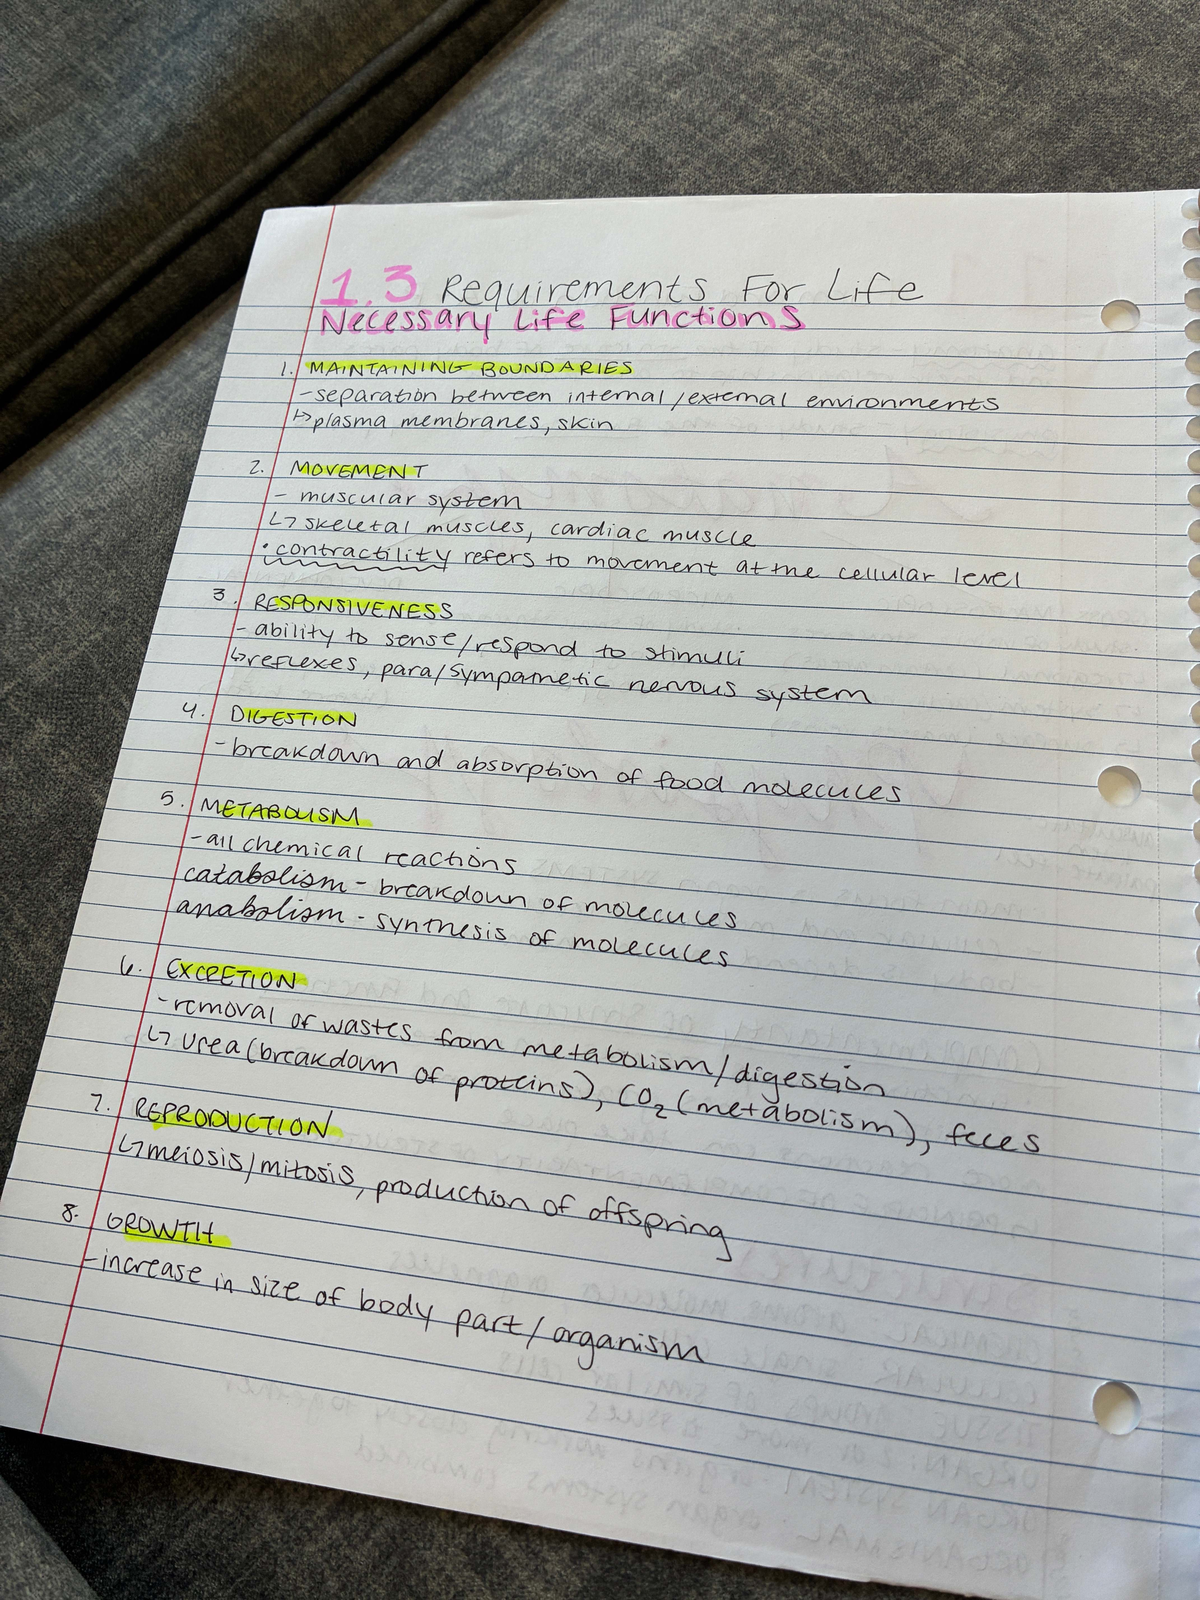 1.3 Requirements For Life
Necessary Life Functions
1. MAINTAINING BOUNDARIES
- separation between internal/external environments
↳ plasma membranes, skin
2. MOVEMENT
- muscular system
↳ skeletal muscles, cardiac muscle
• contractility refers to movement at the cellular level
3. RESPONSIVENESS
- ability to sense/respond to stimuli
↳ reflexes, para/sympathetic nervous system
4. DIGESTION
- breakdown and absorption of food molecules
5. METABOLISM
- all chemical reactions
catabolism - breakdown of molecules
anabolism - synthesis of molecules
6. EXCRETION
- removal of wastes from metabolism/digestion
↳ urea (breakdown of proteins), CO₂ (metabolism), feces
7. REPRODUCTION
↳ meiosis/mitosis, production of offspring
8. GROWTH
- increase in size of body part/organism